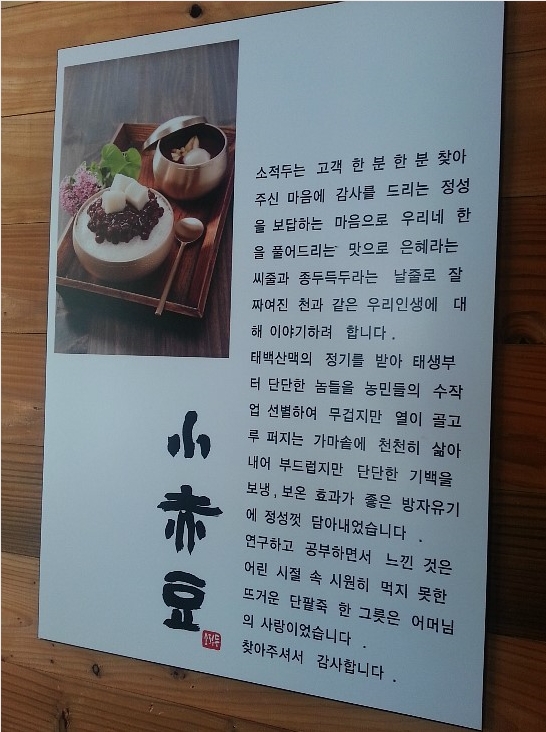 소적두는 고객 한 분 한 분 찾아
주신 마음에 감사를 드리는 정성
을 보답하는 마음으로 우리네 한
을 풀어드리는 맛으로 은혜라는
씨줄과 종두득두라는 날줄로 잘
짜여진 천과 같은 우리인생에 대
해 이야기하려 합니다.
태백산맥의 정기를 받아 태생부
터 단단한 놈들을 농민들의 수작
업 선별하여 무겁지만 열이 골고
루 퍼지는 가마솥에 천천히 삶아
내어 부드럽지만 단단한 기백을
보냉, 보온 효과가 좋은 방자유기
에 정성껏 담아내었습니다 .
연구하고 공부하면서 느낀 것은
어린 시절 속 시원히 먹지 못한
뜨거운 단팥죽 한 그릇은 어머님
의 사랑이었습니다 .
찾아주셔서 감사합니다 .
小
赤
豆
소적두